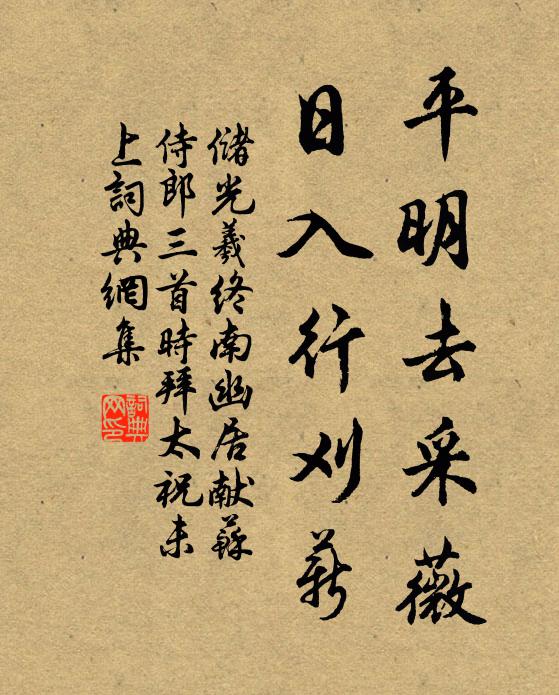 平明去采薇
日入行刈薪
儲光羲終南幽居献蘇
侍郎三首時拜太祝未
上詞典網集
詞典
网印